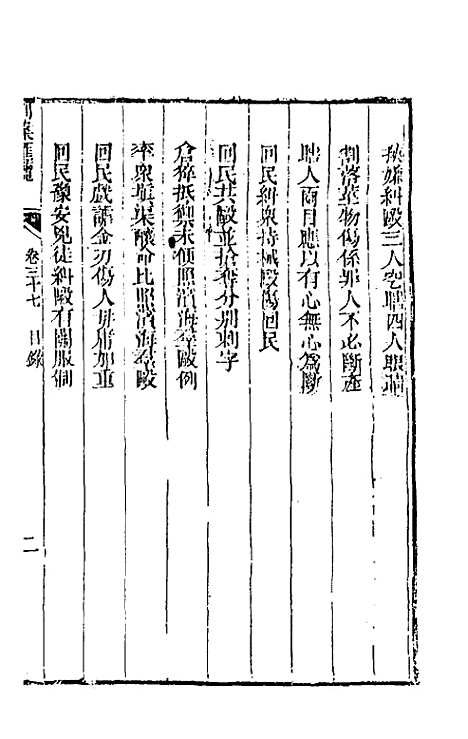 挾嫌糾毆三人空瞎四人眼睛
割落莖物傷係罪人不必斷產
瞎人兩目應以有心無心為斷
回民糾眾持械毆傷回民
回民共毆並拾奪分別刺字
倉猝抵禦未便照濱海羣毆例
率眾填渠釀命比照濱海羣毆
回民戲謔金刃傷人毋庸加重
回民豫安兇徒糾毆有關服制
刑案匯覽
卷三十七 目錄
二